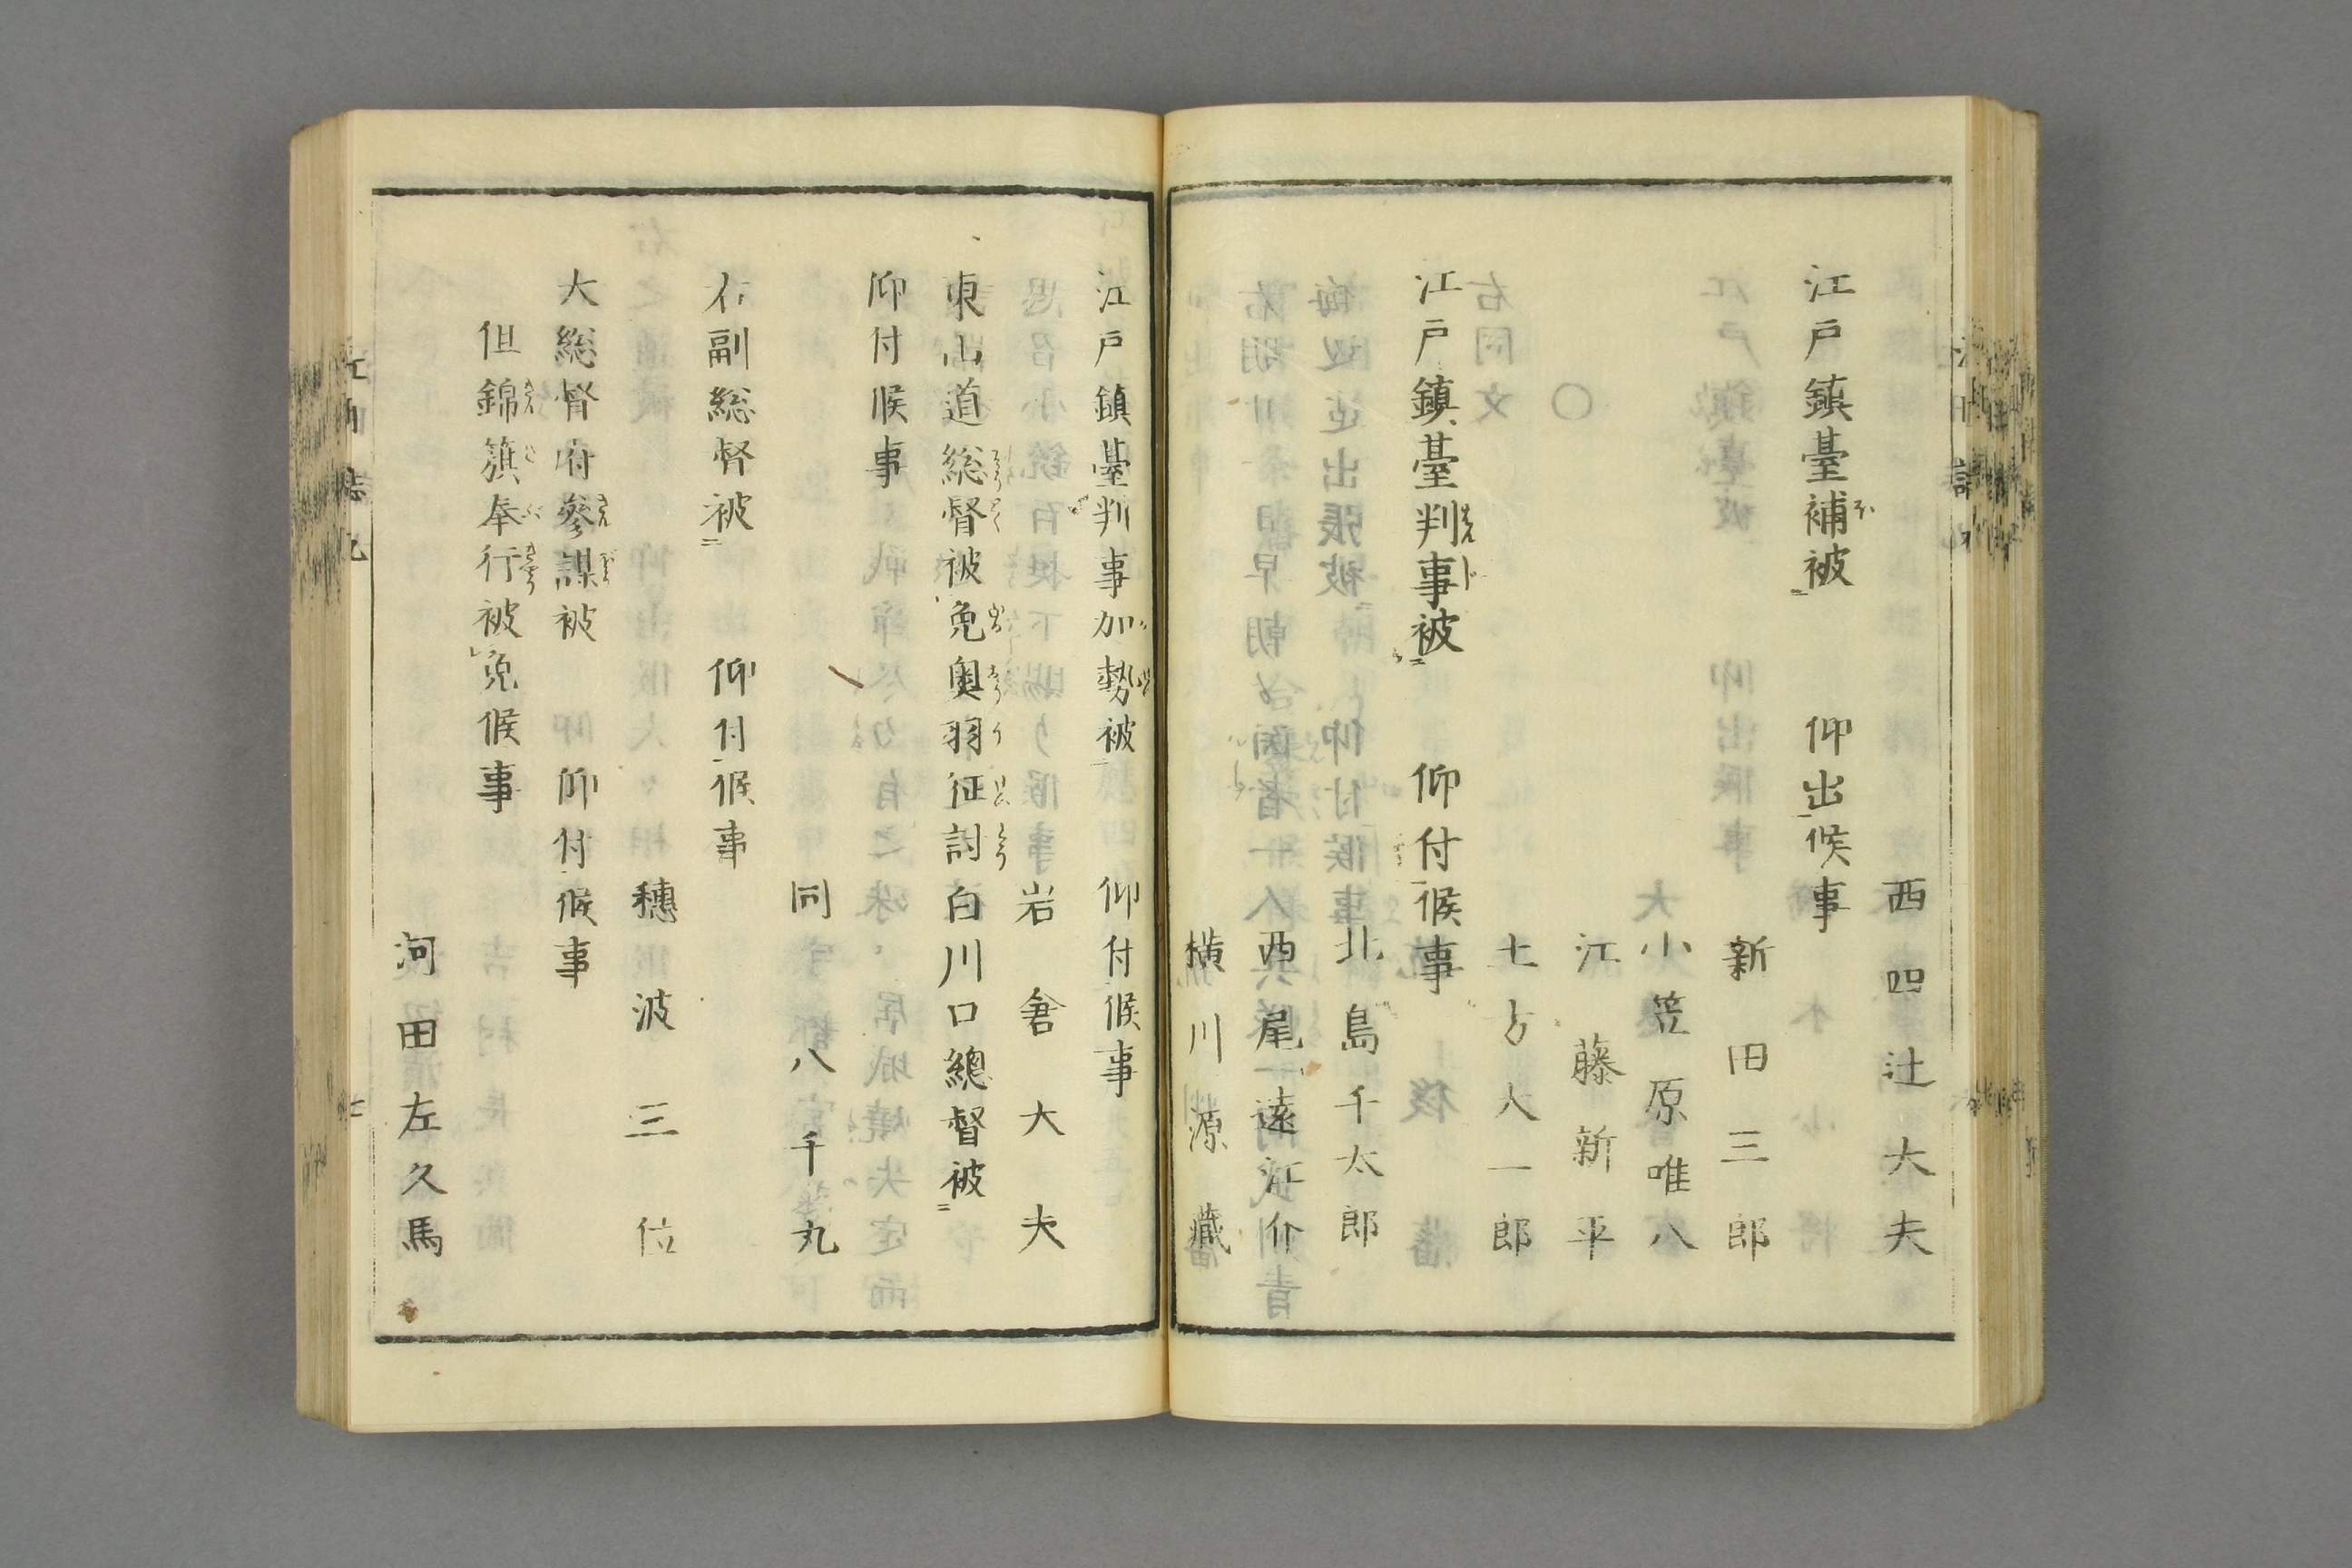 西四辻大夫
江戸鎮臺補被　仰出候事
新田三郎
小笠原唯八
江藤新平
土方大一郎
江戸鎮臺判事被　仰付候事
北島千太郎
西尾遠江介
横川源蔵
江戸鎮臺判事加勢被　仰付候事
岩倉大夫
東山道総督被免奥羽征討白川口總督被
仰付候事
同八千丸
右副総督被　仰付候事
穂波三位
大総督府參謀被　仰付候事
但錦籏奉行被免候事
河田左久馬